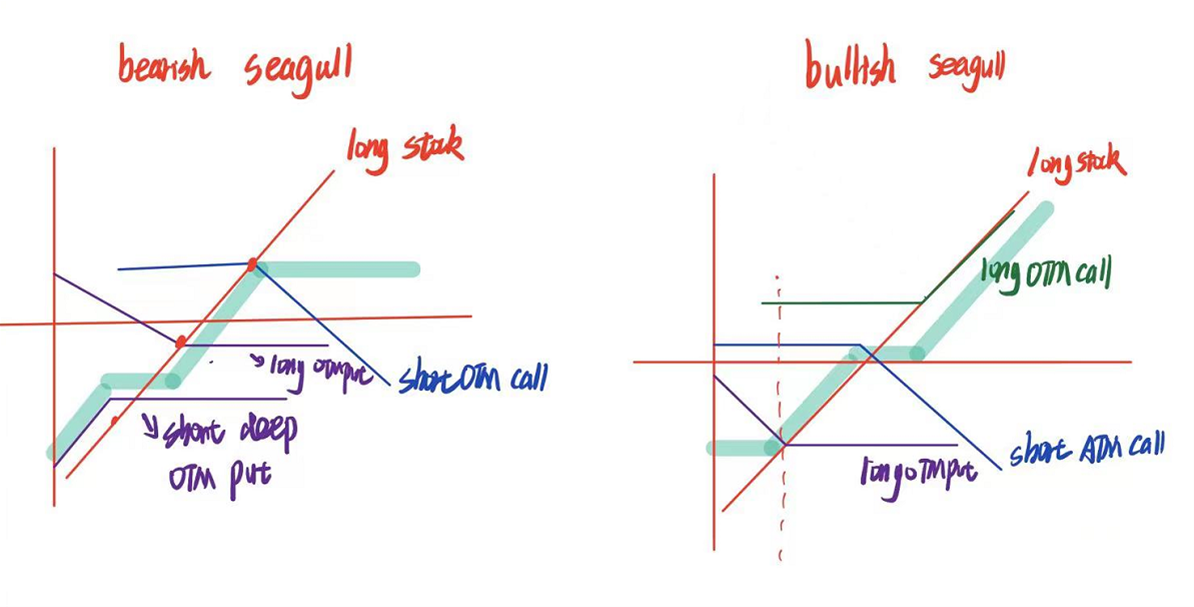 bearish seagull
long stock
long OTM put
short OTM call
short deep
OTM put
bullish seagull
long stock
long OTM call
short ATM call
long OTM put